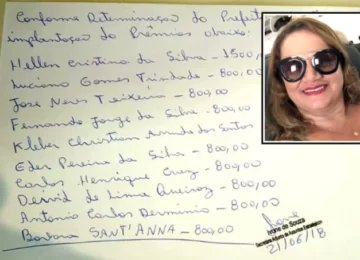 Conforme Determinação do Prefeito
implantação do Prêmios abaixo:
Hellen Cristina da Silva - 1500,
Luciano Gomes Trindade - 800,00
José Neves Teixeira - 800,00
Fernando Jorge da Silva - 800,00
Kleber Christian Arruda dos Santos
Eder Pereira da Silva - 800,00
Carlos Henrique Cruz - 800,00
Deivid de Lima Queiroz - 800,00
Antonio Carlos Derminio - 800,00
Barbara SANT'ANNA - 800,00
Ivone de Souza
Secretária Adjunta de Assuntos Estratégicos
21/06/18